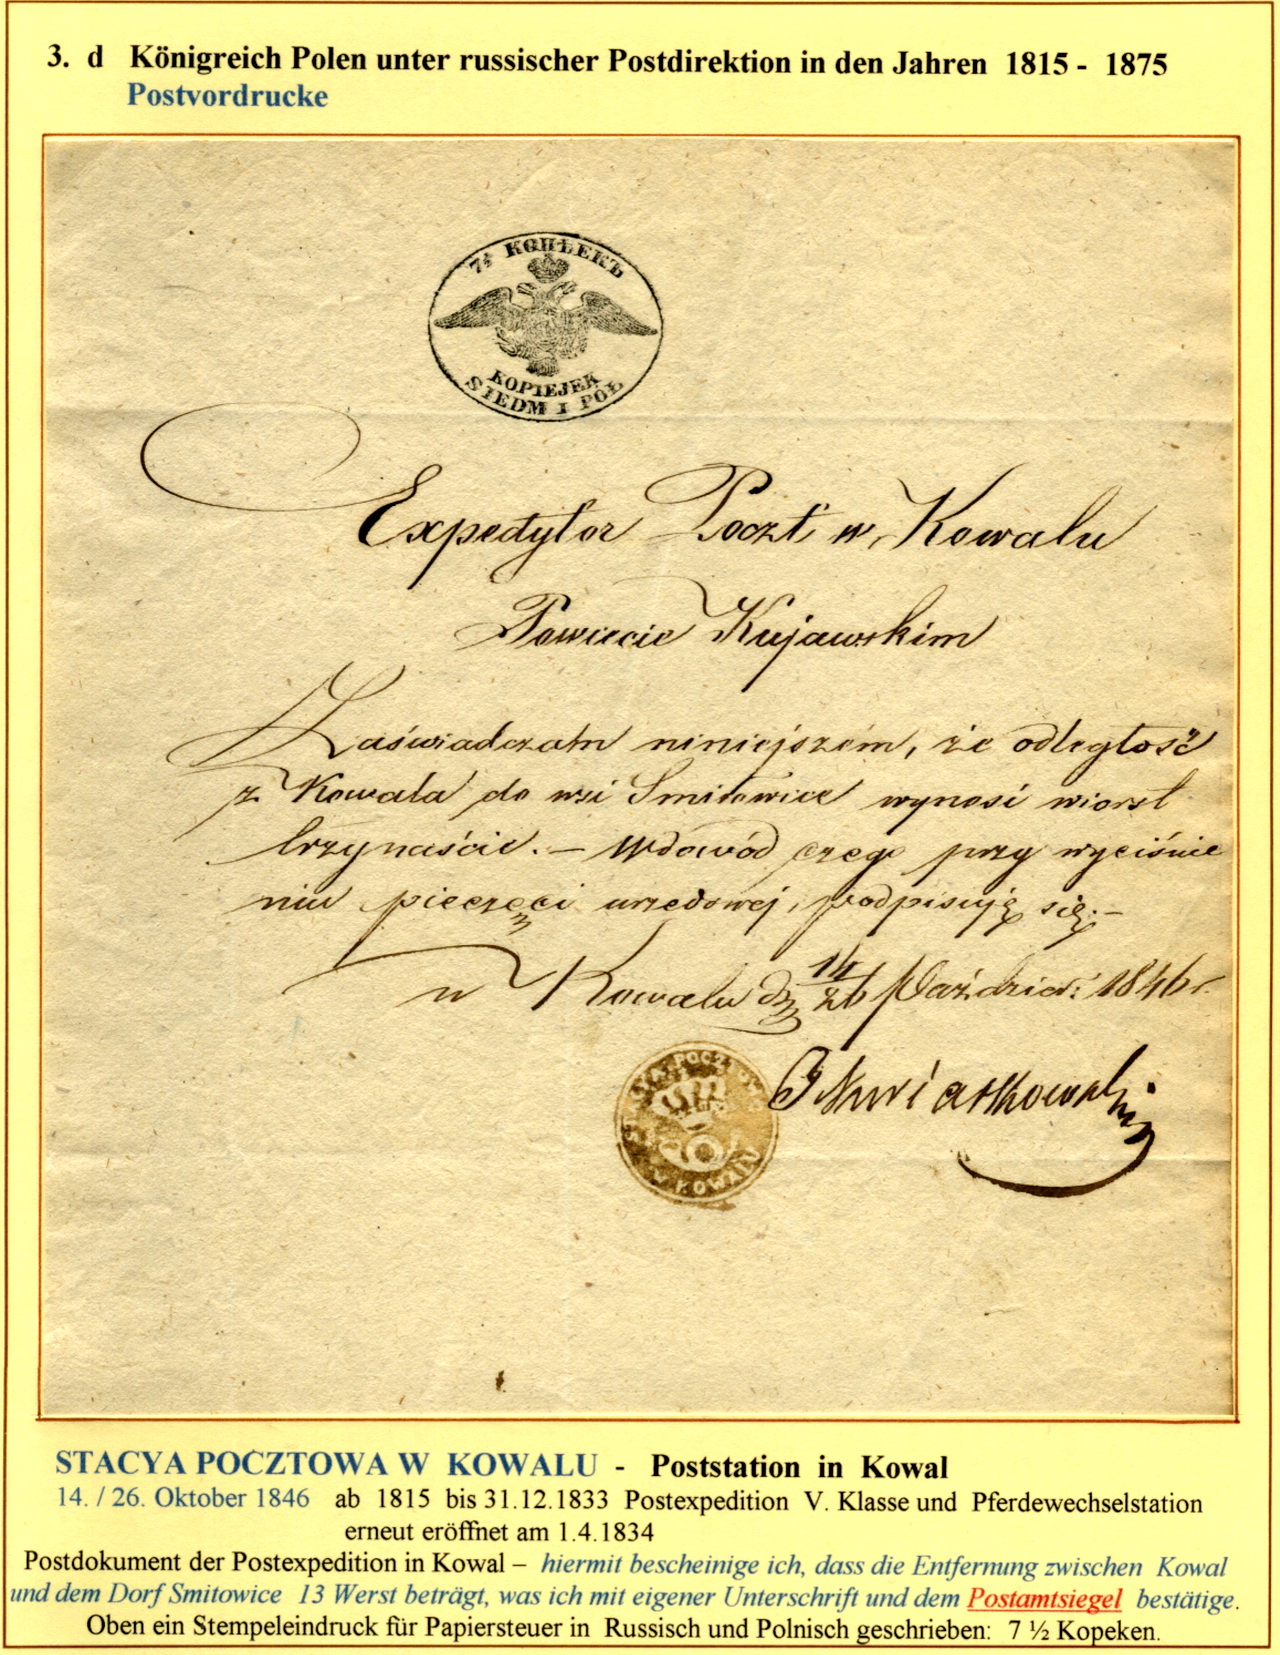 3. d Königreich Polen unter russischer Postdirektion in den Jahren 1815 - 1875
Postvordrucke
7½ КОПѢЕКЪ
KOPIEJEK
SIEDM I PÓŁ
Expedytor Poczt w Kowalu
Powiecie Kujawskim
Zaświadczam niniejszém, że odległość
z Kowala do wsi Smiłowice wynosi wiorst
trzynaście. – W dowód czego przy wyciśnie
niu pieczęci urzędowej, podpisuję się. –
w Kowalu d. 14/26 Paździer: 1846 r.
POCZTOWA
W KOWALU
STACYA POCZTOWA W KOWALU - Poststation in Kowal
14. / 26. Oktober 1846 ab 1815 bis 31.12.1833 Postexpedition V. Klasse und Pferdewechselstation
erneut eröffnet am 1.4.1834
Postdokument der Postexpedition in Kowal – hiermit bescheinige ich, dass die Entfernung zwischen Kowal
und dem Dorf Smitowice 13 Werst beträgt, was ich mit eigener Unterschrift und dem Postamtsiegel bestätige.
Oben ein Stempeleindruck für Papiersteuer in Russisch und Polnisch geschrieben: 7 ½ Kopeken.